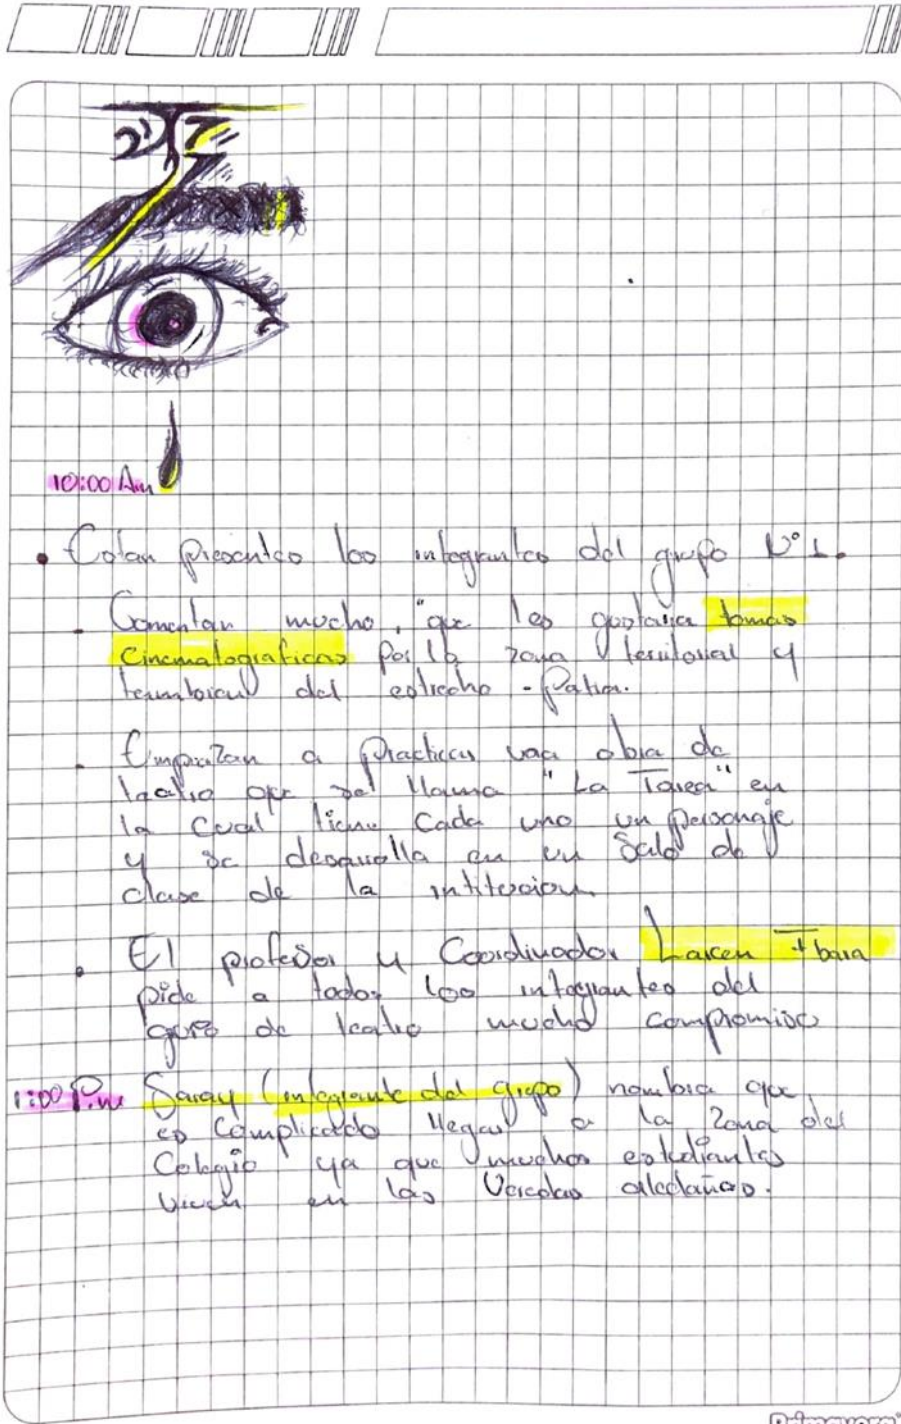 10:00 Am
• Estan presentes los integrantes del grupo N° 1.
- Comentan mucho, "que les gustaria tomas
cinematograficas por la zona territorial y
territorial del estrecho - Patia.
- Empiezan a practicar una obra de
teatro que se llama "La Tarea" en
la cual tiene cada uno un personaje
y se desarrolla en un Salo de
clase de la intitucion
• El profesor y Coordinador Larcen Ibara
pide a todos los integrantes del
grupo de teatro mucho compromiso
1:00 P.m Saray (integrante del grupo) nombra que
es complicado llegar a la zona del
Colegio ya que muchos estudiantes
viven en las Veredas aledañas.
Primavera